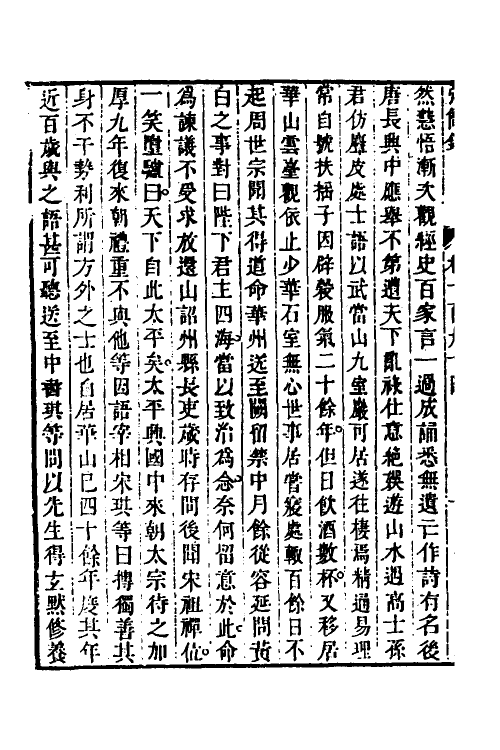 然慧悟漸大觀經史百家言一過成誦悉無遺亡作詩有名後
唐長興中應舉不第遭天下亂祿仕意絶獏遊山水過高士孫
君仿麞皮處士語以武當山九室巖可居遂往棲焉精通易理
常自號扶搖子因辟穀服氣二十餘年但日飲酒數杯又移居
華山雲臺觀依止少華石室無心世事居嘗寢處輙百餘日不
起周世宗聞其得道命華州送至闕留禁中月餘從容延問黄
白之事對曰陛下君主四海當以致治爲念奈何留意於此命
爲諫議不受求放還山詔州縣長吏歲時存問後聞宋祖禪位
一笑墮驢曰天下自此太平矣太平興國中來朝太宗待之加
厚九年復來朝禮重不與他等因語宰相宋琪等曰摶獨善其
身不干勢利所謂方外之士也自居華山已四十餘年度其年
近百歲與之語甚可聽送至中書琪等問以先生得玄默修養